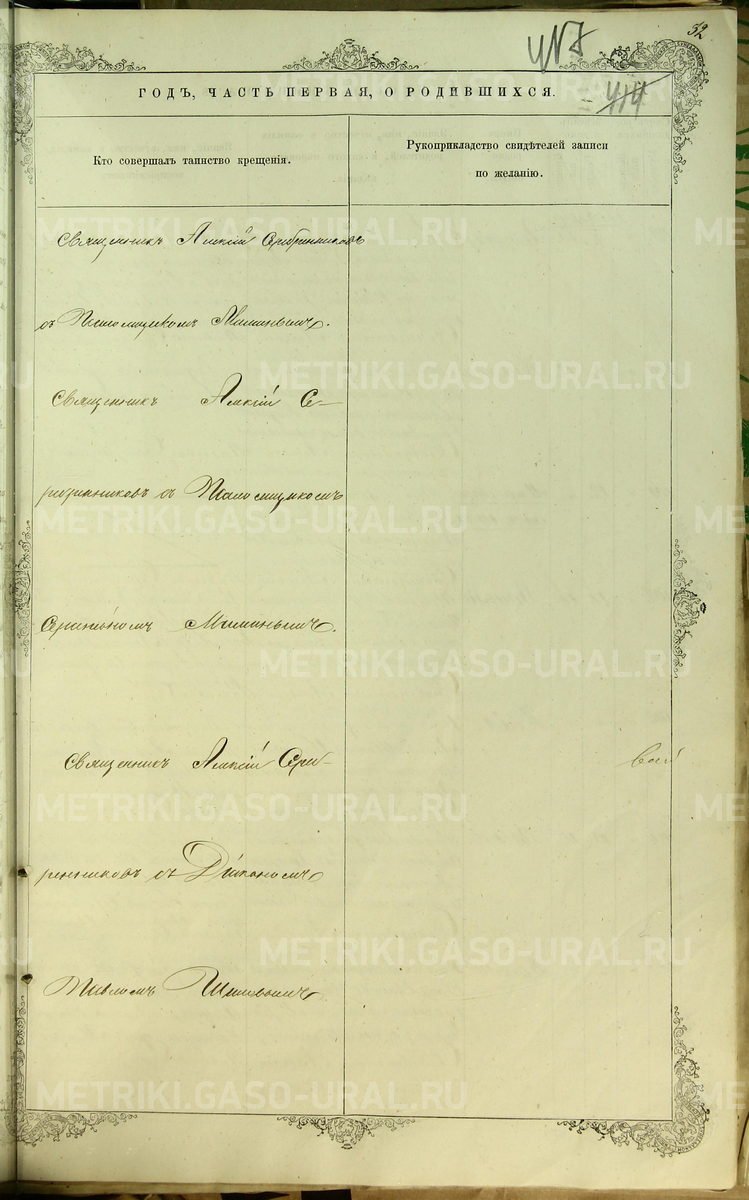 52
414
ГОДЪ, ЧАСТЬ ПЕРВАЯ, О РОДИВШИХСЯ.
Кто совершалъ таинство крещенія.
Рукоприкладство свидѣтелей записи
по желанію.
Священникъ Алексій Серебренниковъ
съ Псаломщикомъ
Священникъ Алексій Се-
ребренниковъ съ Псаломщикомъ
Священникъ Алексій Сере-
бренниковъ съ Діакономъ
Павломъ
METRIKI.GASO-URAL.RU